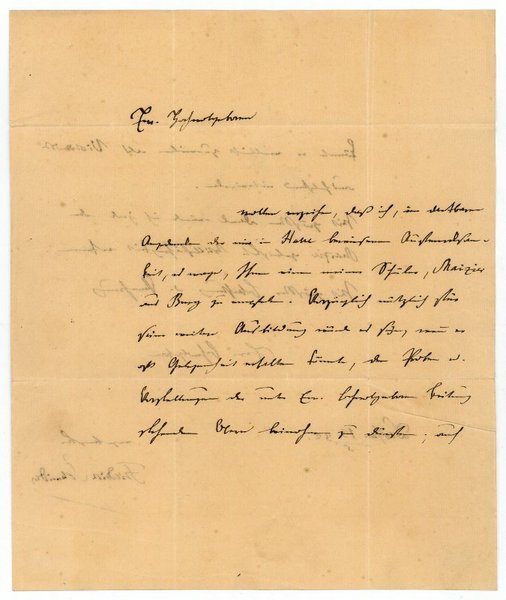 Ew. Hochwohlgeboren
wollen verzeihen, daß ich, im dankbaren
Andenken der mir in Halle bewiesenen Aufmerksam-
keit, es wage, Ihnen einen meiner Schüler, Maizier
aus Burg zu empfehlen. Vorzüglich nützlich für
seine weitere Ausbildung würde es seyn, wenn er
oft Gelegenheit erhalten könnte, den Proben u.
Vorstellungen der unter Ew. Hochwohlgeboren Leitung
stehenden Oper beiwohnen zu dürfen; auch